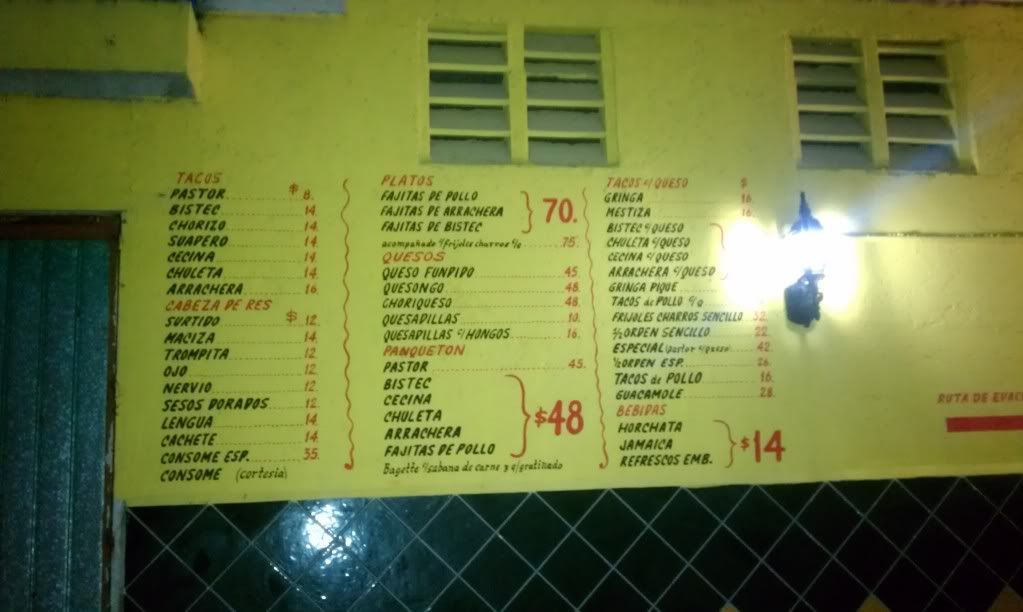 TACOS $
PASTOR 8.
BISTEC 14.
CHORIZO 14.
SUADERO 14.
CECINA 14.
CHULETA 14.
ARRACHERA 16.
CABEZA DE RES $
SURTIDO 12.
MACIZA 14.
TROMPITA 12.
OJO 12.
NERVIO 12.
SESOS DORADOS 12.
LENGUA 14.
CACHETE 14.
CONSOME ESP. 35.
CONSOME (cortesia)
PLATOS
FAJITAS DE POLLO
FAJITAS DE ARRACHERA 70.
FAJITAS DE BISTEC
acompañado c/frijoles charros c/q 75.
QUESOS
QUESO FUNDIDO 45.
QUESONGO 48.
CHORIQUESO 48.
QUESADILLAS 10.
QUESADILLAS c/HONGOS 16.
PANQUETON
PASTOR 45.
BISTEC
CECINA
CHULETA $48
ARRACHERA
FAJITAS DE POLLO
Bagette c/sabana de carne y q/gratinado
TACOS c/QUESO $
GRINGA 16.
MESTIZA 16.
BISTEC c/QUESO
CHULETA c/QUESO
CECINA c/QUESO
ARRACHERA c/QUESO
GRINGA PIQUE
TACOS de POLLO c/q
FRIJOLES CHARROS SENCILLO 32.
½ ORDEN SENCILLO 22.
ESPECIAL (pastor c/queso) 42.
½ ORDEN ESP. 26.
TACOS de POLLO 16.
GUACAMOLE 28.
BEBIDAS
HORCHATA
JAMAICA $14
REFRESCOS EMB.
RUTA DE